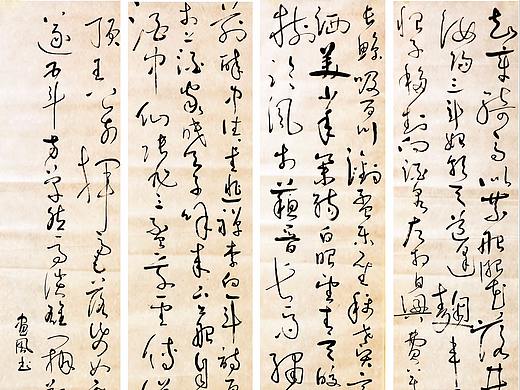 知章騎馬似乘船眼花落井
汝陽三斗始朝天道逢麴車
恨不移封向酒泉左相日興費萬
長鯨吸百川銜杯樂聖稱避賢宗
洒美少年舉觴白眼望青天皎
樹臨風前蘇晉長齋繡
前醉中往往愛逃禪李白一斗詩百
市上酒家眠天子呼來不上船自
酒中仙張旭三杯草聖傳
頂王公前揮毫落紙如雲
遂五斗方卓然高談雄辯